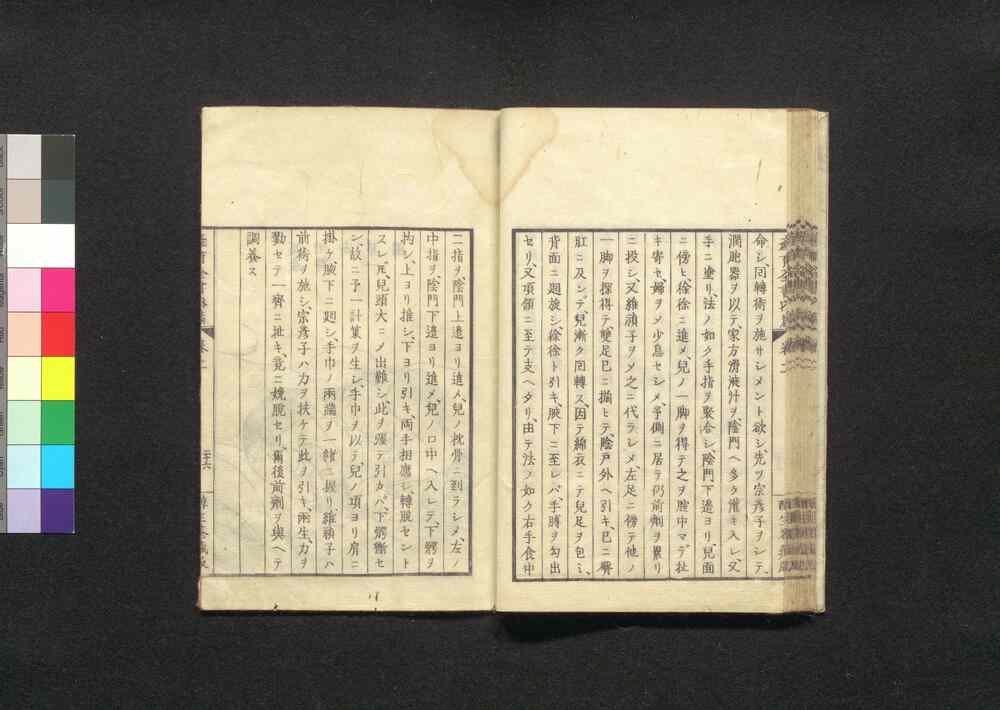 命シ、囘轉術ヲ施サシメント欲シ、先ツ宗彦子ヲシテ、
潤胞器ヲ以テ、家方滑液汁ヲ、陰門ヘ多ク灌キ入レ、又
手ニ塗リ、法ノ如ク手指ヲ聚合シ、陰門下邉ヨリ、兒面
ニ傍ヒ、徐徐ニ進メ、兒ノ一脚ヲ得テ之ヲ腟中マデ扯
キ寄セ、婦ヲメ少息セシメ、予側ニ居テ仍前劑ヲ累リ
ニ投シ、又維禎子ヲメ之ニ代ラシメ、左足ニ傍テ他ノ
一脚ヲ探得テ、雙足已ニ揃ヒテ、陰戸外ヘ引キ、已ニ臀
肛ニ及ンデ、兒漸ク囘轉ス、因テ綿衣ニテ兒足ヲ包ミ、
背面ニ廻旋シ、徐徐ト引キ、腋下ニ至レバ、手膊ヲ勾出
セリ、又項頷ニ至テ支ヘタリ、由テ法ノ如ク右手食中
二指ヲ、陰門上邉ヨリ進メ、兒ノ枕骨ニ到ラシメ、左ノ
中指ヲ、陰門下邉ヨリ進メ、兒ノ口中ヘ入レテ、下腭ヲ
拘シ、上ヨリ推シ、下ヨリ引キ、兩手相應シ、轉脱セント
スレ𪜈、兒頭大ニメ出難シ、此ヲ強テ引カバ、下腭斷セ
ン、故ニ予一計策ヲ生シ、手巾ヲ以テ兒ノ項ヨリ肩ニ
掛ケ、腋下ニ廻シ、手巾ノ兩端ヲ一緒ニ握リ、維禎子ハ
前術ヲ施シ、宗彦子ハ力ヲ扶ケテ此ヲ引キ、兩生、力ヲ
勠セテ一齊ニ扯キ、竟ニ娩脱セリ、爾後前劑ヲ與ヘテ
調養ス